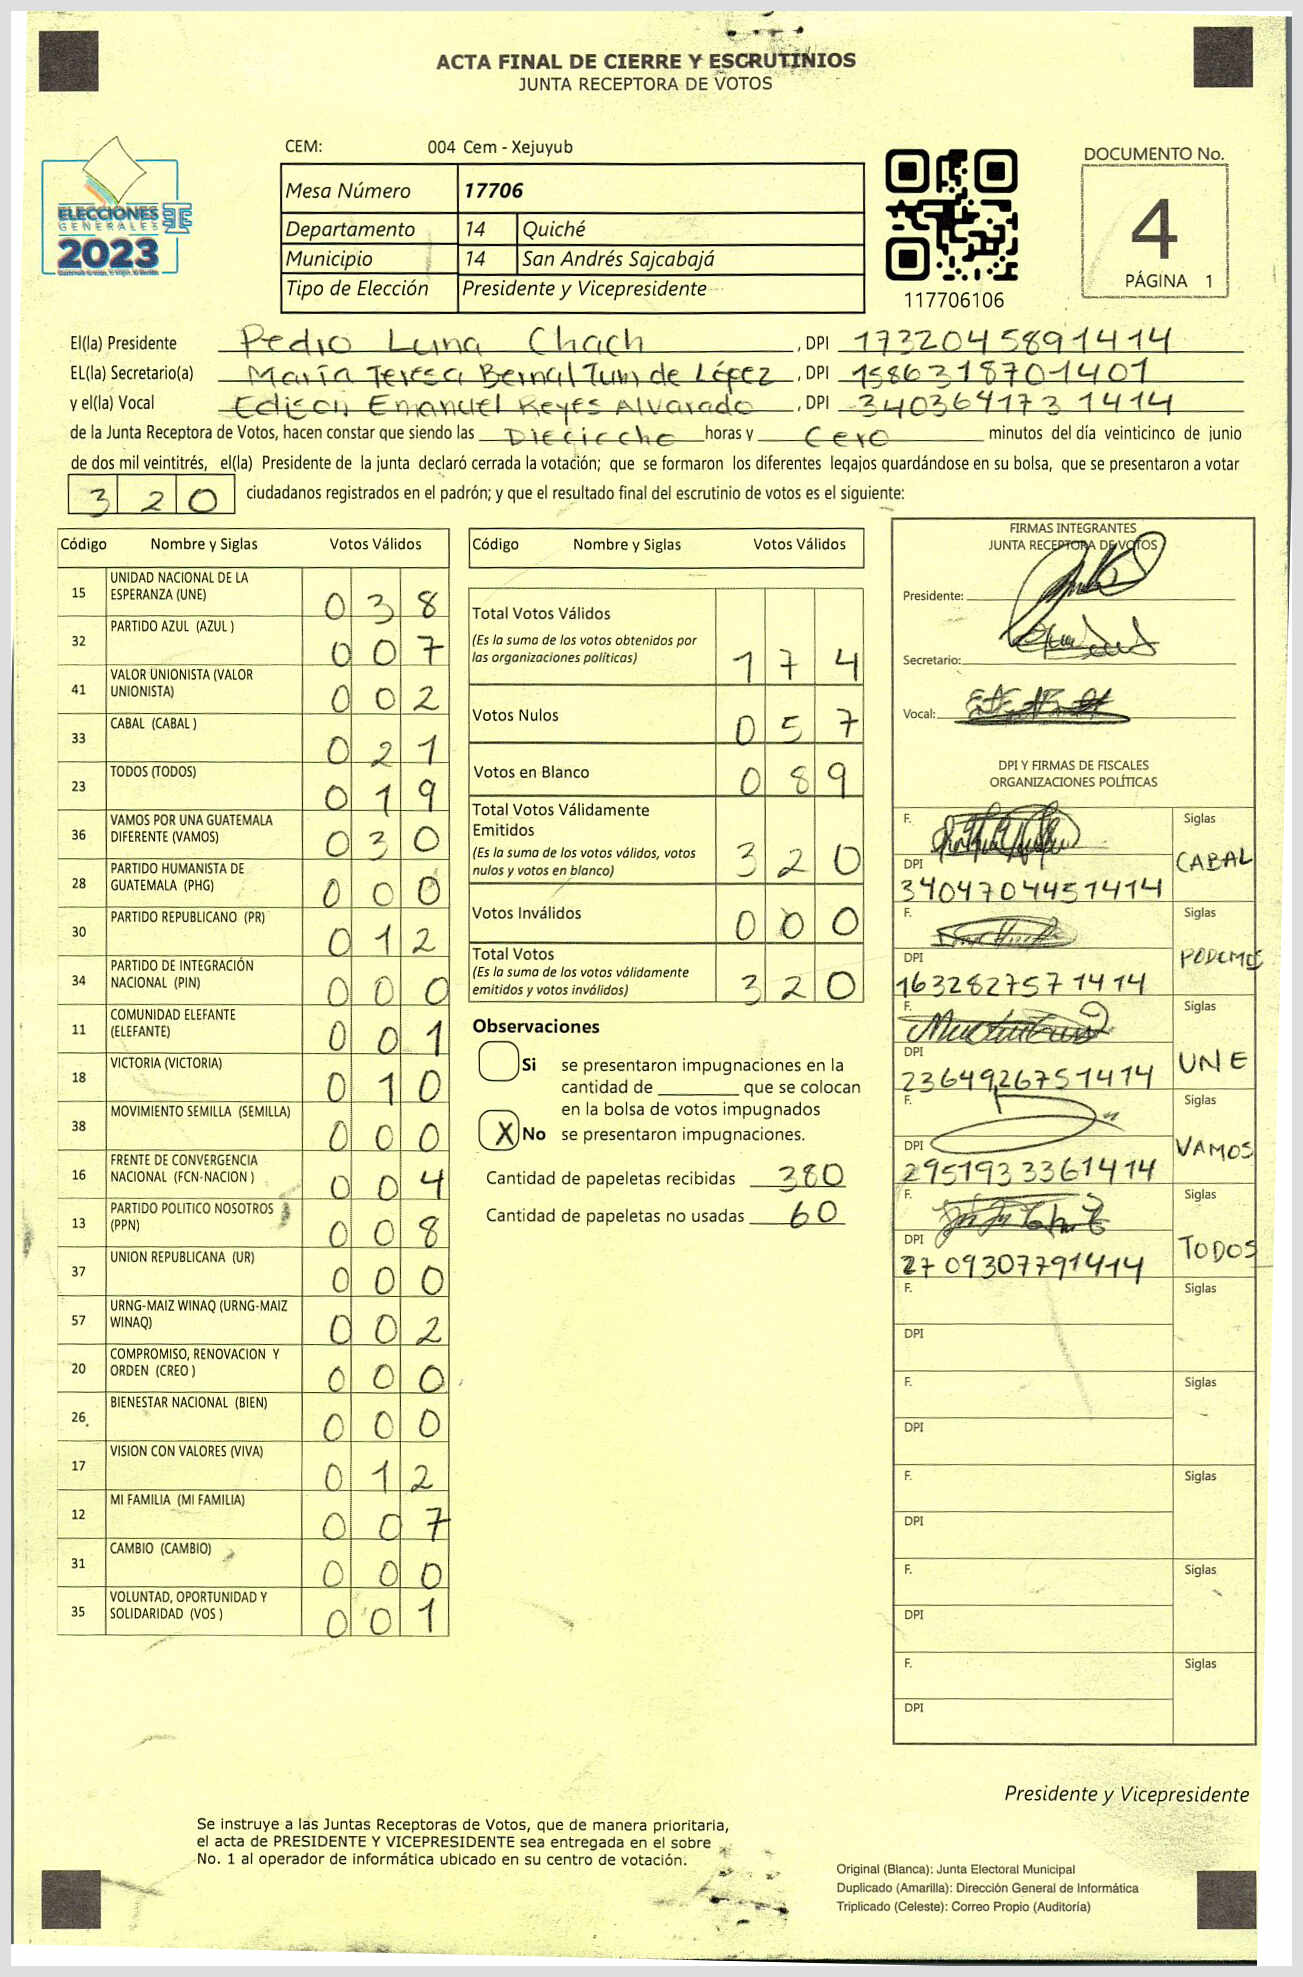 ACTA FINAL DE CIERRE Y ESCRUTINIOS
JUNTA RECEPTORA DE VOTOS
ELECCIONES
GENERALES
2023
CEM: 004 Cem - Xejuyub
Mesa Número 17706
Departamento 14 Quiché
Municipio 14 San Andrés Sajcabajá
Tipo de Elección Presidente y Vicepresidente
117706106
DOCUMENTO No.
4
PÁGINA 1
El(la) Presidente Pedro Luna Chach, DPI 1732045891414
EL(la) Secretario(a) María Teresa Bernal Tum de López, DPI 1586318701401
y el(la) Vocal Edison Emanuel Reyes Alvarado, DPI 3403641731414
de la Junta Receptora de Votos, hacen constar que siendo las Dieciocho horas y Cero minutos del día veinticinco de junio
de dos mil veintitrés, el(la) Presidente de la junta declaró cerrada la votación; que se formaron los diferentes legajos guardándose en su bolsa, que se presentaron a votar
320 ciudadanos registrados en el padrón; y que el resultado final del escrutinio de votos es el siguiente:
Código Nombre y Siglas Votos Válidos
15 UNIDAD NACIONAL DE LA ESPERANZA (UNE) 038
32 PARTIDO AZUL (AZUL ) 007
41 VALOR UNIONISTA (VALOR UNIONISTA) 002
33 CABAL (CABAL ) 021
23 TODOS (TODOS) 019
36 VAMOS POR UNA GUATEMALA DIFERENTE (VAMOS) 030
28 PARTIDO HUMANISTA DE GUATEMALA (PHG) 000
30 PARTIDO REPUBLICANO (PR) 012
34 PARTIDO DE INTEGRACIÓN NACIONAL (PIN) 000
11 COMUNIDAD ELEFANTE (ELEFANTE) 001
18 VICTORIA (VICTORIA) 010
38 MOVIMIENTO SEMILLA (SEMILLA) 000
16 FRENTE DE CONVERGENCIA NACIONAL (FCN-NACION ) 004
13 PARTIDO POLITICO NOSOTROS (PPN) 008
37 UNION REPUBLICANA (UR) 000
57 URNG-MAIZ WINAQ (URNG-MAIZ WINAQ) 002
20 COMPROMISO, RENOVACION Y ORDEN (CREO ) 000
26 BIENESTAR NACIONAL (BIEN) 000
17 VISION CON VALORES (VIVA) 012
12 MI FAMILIA (MI FAMILIA) 007
31 CAMBIO (CAMBIO) 000
35 VOLUNTAD, OPORTUNIDAD Y SOLIDARIDAD (VOS ) 001
Código Nombre y Siglas Votos Válidos
Total Votos Válidos
(Es la suma de los votos obtenidos por
las organizaciones políticas) 174
Votos Nulos 057
Votos en Blanco 089
Total Votos Válidamente
Emitidos
(Es la suma de los votos válidos, votos
nulos y votos en blanco) 320
Votos Inválidos 000
Total Votos
(Es la suma de los votos válidamente
emitidos y votos inválidos) 320
Observaciones
Si se presentaron impugnaciones en la
cantidad de ________ que se colocan
en la bolsa de votos impugnados
X No se presentaron impugnaciones.
Cantidad de papeletas recibidas 380
Cantidad de papeletas no usadas 60
FIRMAS INTEGRANTES
JUNTA RECEPTORA DE VOTOS
Presidente:
Secretario:
Vocal:
DPI Y FIRMAS DE FISCALES
ORGANIZACIONES POLÍTICAS
F. Siglas
CABAL
DPI
3404704451414
F. Siglas
PODEMOS
DPI
1632827571414
F. Siglas
UNE
DPI
2364926751414
F. Siglas
VAMOS
DPI
2951933361414
F. Siglas
TODOS
DPI
2709307791414
F. Siglas
DPI
F. Siglas
DPI
F. Siglas
DPI
F. Siglas
DPI
F. Siglas
DPI
Presidente y Vicepresidente
Se instruye a las Juntas Receptoras de Votos, que de manera prioritaria,
el acta de PRESIDENTE Y VICEPRESIDENTE sea entregada en el sobre
No. 1 al operador de informática ubicado en su centro de votación.
Original (Blanca): Junta Electoral Municipal
Duplicado (Amarilla): Dirección General de Informática
Triplicado (Celeste): Correo Propio (Auditoría)